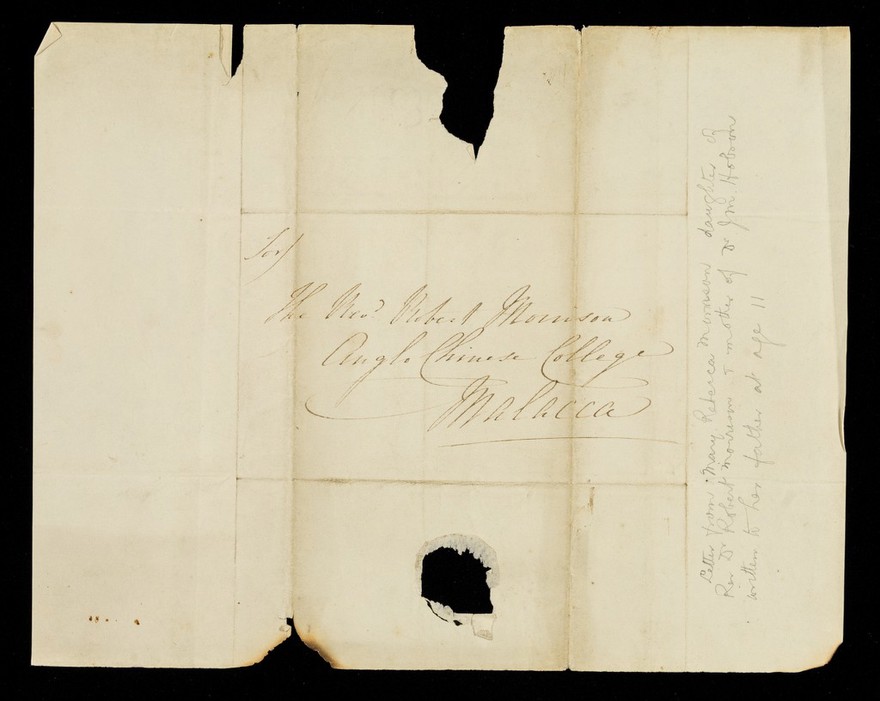 For/
The Revd Robert Morrison
Anglo Chinese College
Malacca
Letter from Mary Rebecca Morrison daughter of
Rev Dr Robert Morrison & mother of Dr J M Hobson
written to her father at age 11